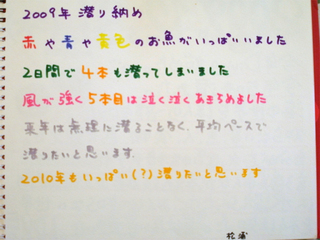 2009年 潜り納め
赤や青や黄色のお魚がいっぱいいました
2日間で4本も潜ってしまいました
風が強く5本目は泣く泣くあきらめました
来年は無理に潜ることなく、平均ペースで
潜りたいと思います.
2010年もいっぱい(?)潜りたいと思います